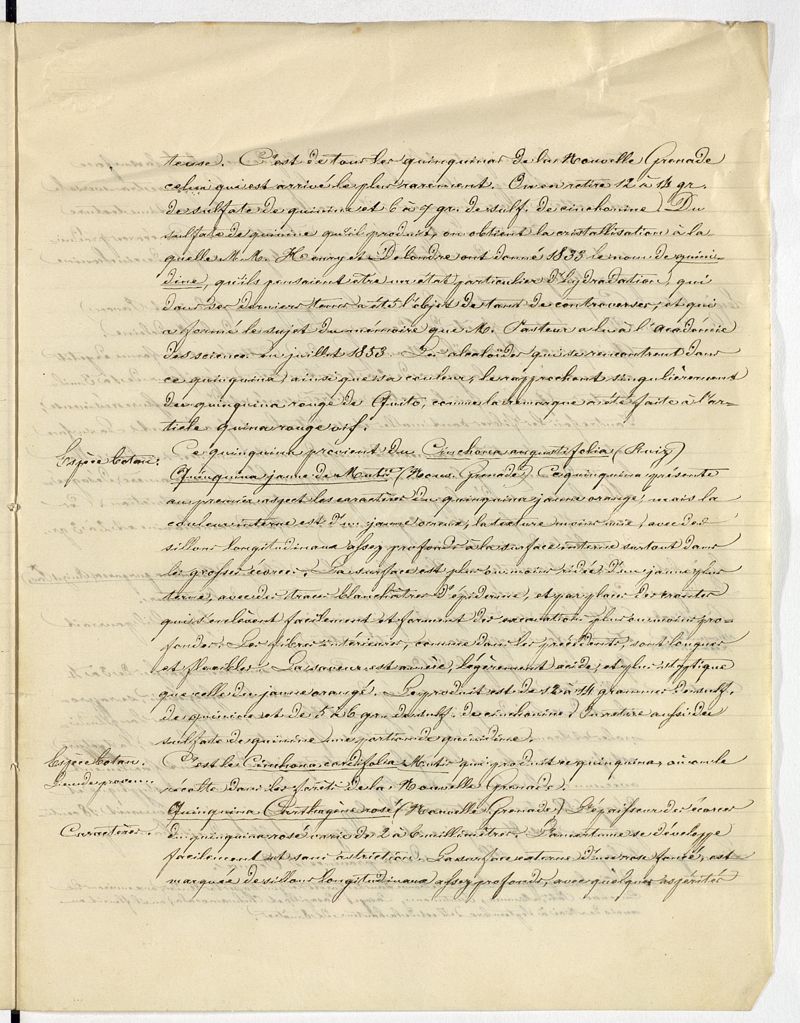 teuse. C'est de tous les quinquinas de la Nouvelle Grenade
celui qui est arrivé le plus rarement. On en retire 12 à 14 gr.
de sulfate de quinine et 6 à 7 gr. de sulf. de cinchonine. Du
sulfate de quinine qu'il produit, on obtient la cristallisation à la
quelle M.M. Henry et Delondre ont donné 1833 le nom de quini-
dine, qu'ils pensaient être un état particulier d'hydradation, qui
dans ces derniers tems a été l'objet de tant de controverses, et qui
a formé le sujet du mémoire que M. Pasteur a lu à l'Académie
des sciences en juillet 1853. Les alcaloïdes qui se rencontrent dans
ce quinquina, ainsi que sa couleur, le rapprochent singulièrement
du quinquina rouge de Quito, comme la remarque a été faite à l'ar-
ticle Quina rouge vif.
Espèce botan. Ce quinquina provient du Cinchona angustifolia (Ruiz)
Quinquina jaune de Mutis (Nouv. Grenade) Ce quinquina présente
au premier aspect les caractères du quinquina jaune orangé, mais la
couleur interne est d'un jaune ocreux, la texture moins unie, avec des
sillons longitudinaux assez profonds à la surface interne surtout dans
les grosses écorces. La surface est plus ou moins ridée, d'un jaune plus
terne, avec des traces blanchâtres d'épiderme, et par places des croûtes
qui s'enlèvent facilement et forment des excavations plus ou moins pro-
fondes. Les fibres intérieures, comme dans les précédents, sont longues
et flexibles. La saveur est amère, légèrement acide, et plus styptique
que celle du jaune orangé. Le produit est de 12 à 14 grammes de sulf.
de quinine et de 5 à 6 gr. de sulf. de cinchonine. On retire aussi du
sulfate de quinine une portion de quinidine.
Espèce botan. C'est le Cinchona cordifolia Mutis qui produit ce quinquina, où on le
Lieu de proven. récolte dans les forêts de la Nouvelle Grenade.
Quinquina Carthagène rosé (Nouvelle Grenade) L'épaisseur des écorces
Caractères. du quinquina rosé varie de 2 à 6 millimètres. L'amertume se développe
facilement et sans astriction. La surface externe d'un rose foncé, est
marquée de sillons longitudinaux assez profonds, avec quelques aspérités